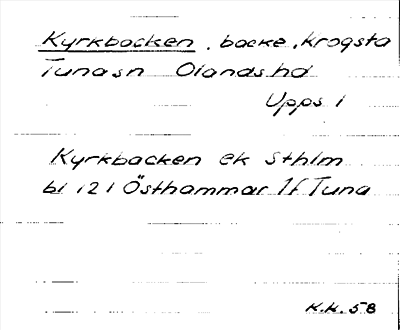 Kyrkbacken, backe, Krogsta
Tuna sn Olands hd
Upps l
Kyrkbacken ek Sthlm
bl 121 Östhammar 1f Tuna
K.K. 58